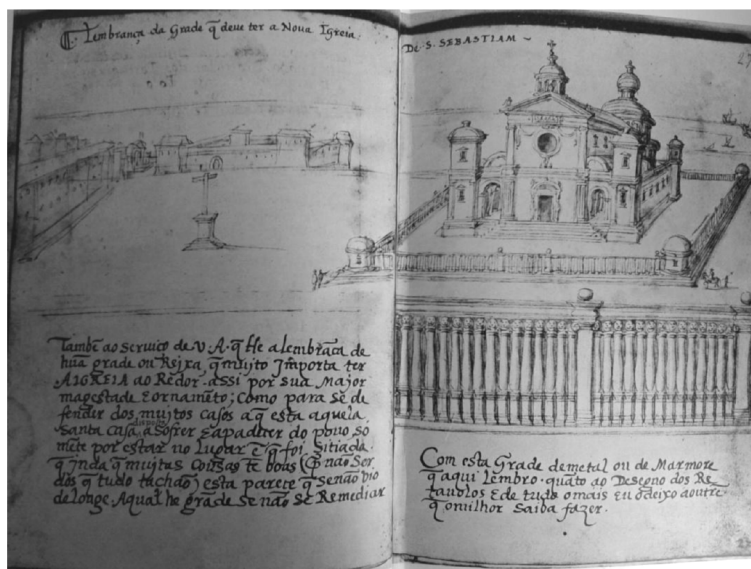 Lembrança da Grade q̃ deve ter a Nova Igreia
DE · S · SEBASTIAM ~
27
Tambẽ ao serviço de V. A. q̃ He a lembrãça de
huã grade ou Reixa q̃ mujto Importa ter
AIGREIA ao Redor. assi por sua Major
magestade e ornamẽto; Como para se de
fender dos mujtos casos a q̃ esta aquela
santa casa a sofrer e a padecer do povo so
mẽte por estar no Lugar ẽ q̃ foi sitiada.
q̃ Inda q̃ mujtas Cousas tẽ boas
dos q̃ tudo tachão) esta parece q̃ se não vio
de longe. Aqual he grade se não se Remediar
Com esta Grade de metal ou de Marmore
q̃ aqui Lembro. quãto ao Desegno dos Re
tavolos E de tudo o mais Eu o deixo a outrẽ
q̃ o milhor saiba fazer.